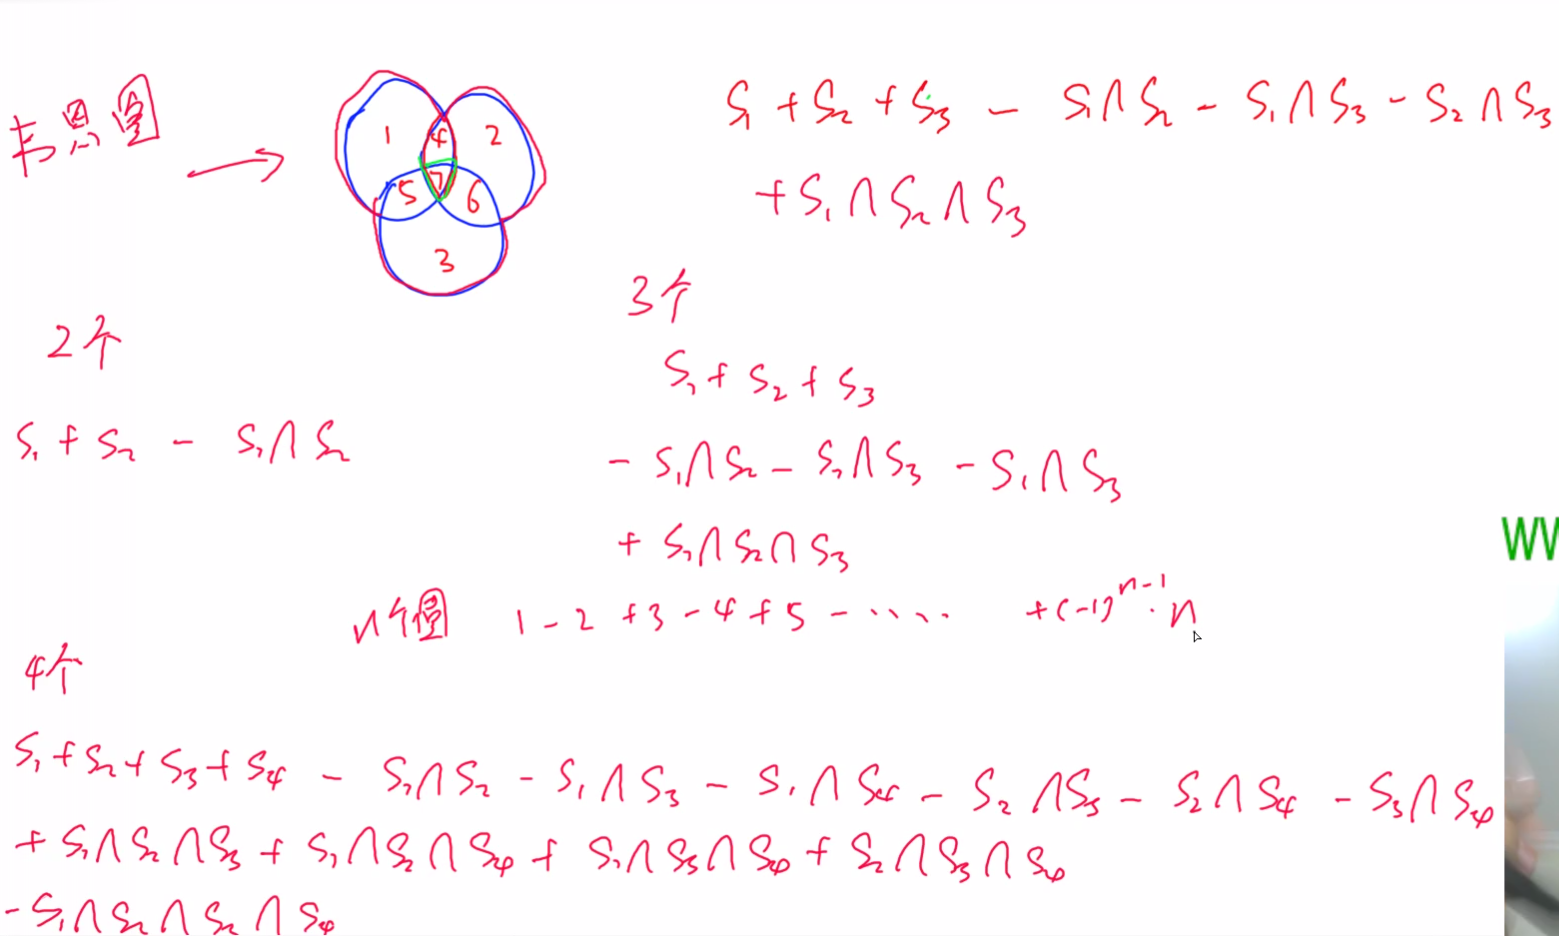 韦恩图
1 4 2
5 7 6
3
S₁ + S₂ + S₃ - S₁∩S₂ - S₁∩S₃ - S₂∩S₃
+ S₁∩S₂∩S₃
2个
S₁ + S₂ - S₁∩S₂
3个
S₁ + S₂ + S₃
- S₁∩S₂ - S₂∩S₃ - S₁∩S₃
+ S₁∩S₂∩S₃
n个圆 1 - 2 + 3 - 4 + 5 - ····· + (-1)ⁿ⁻¹ · n
4个
S₁ + S₂ + S₃ + S₄ - S₁∩S₂ - S₁∩S₃ - S₁∩S₄ - S₂∩S₃ - S₂∩S₄ - S₃∩S₄
+ S₁∩S₂∩S₃ + S₁∩S₂∩S₄ + S₁∩S₃∩S₄ + S₂∩S₃∩S₄
- S₁∩S₂∩S₂∩S₄